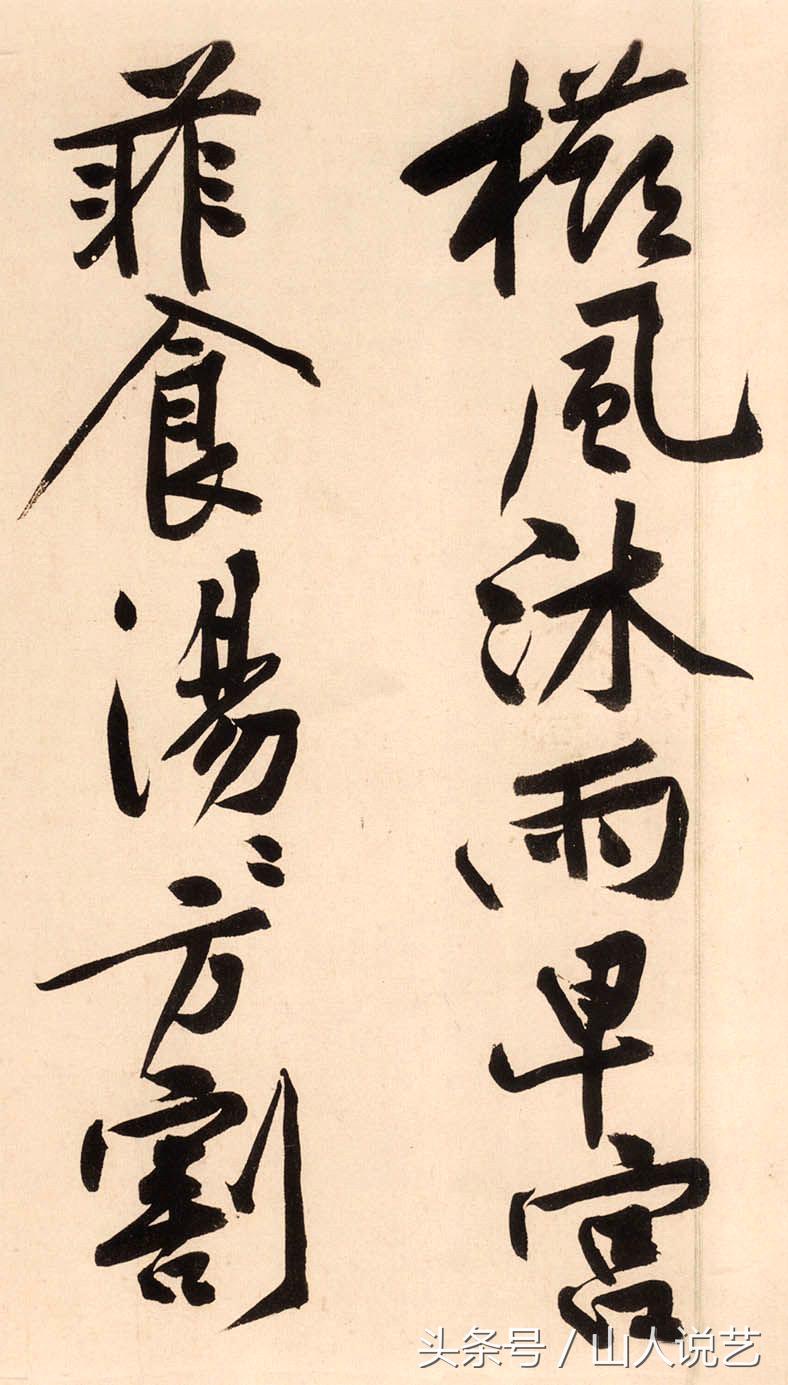 櫛風沐雨卑宮
菲食湯〻方割
头条号 / 山人说艺